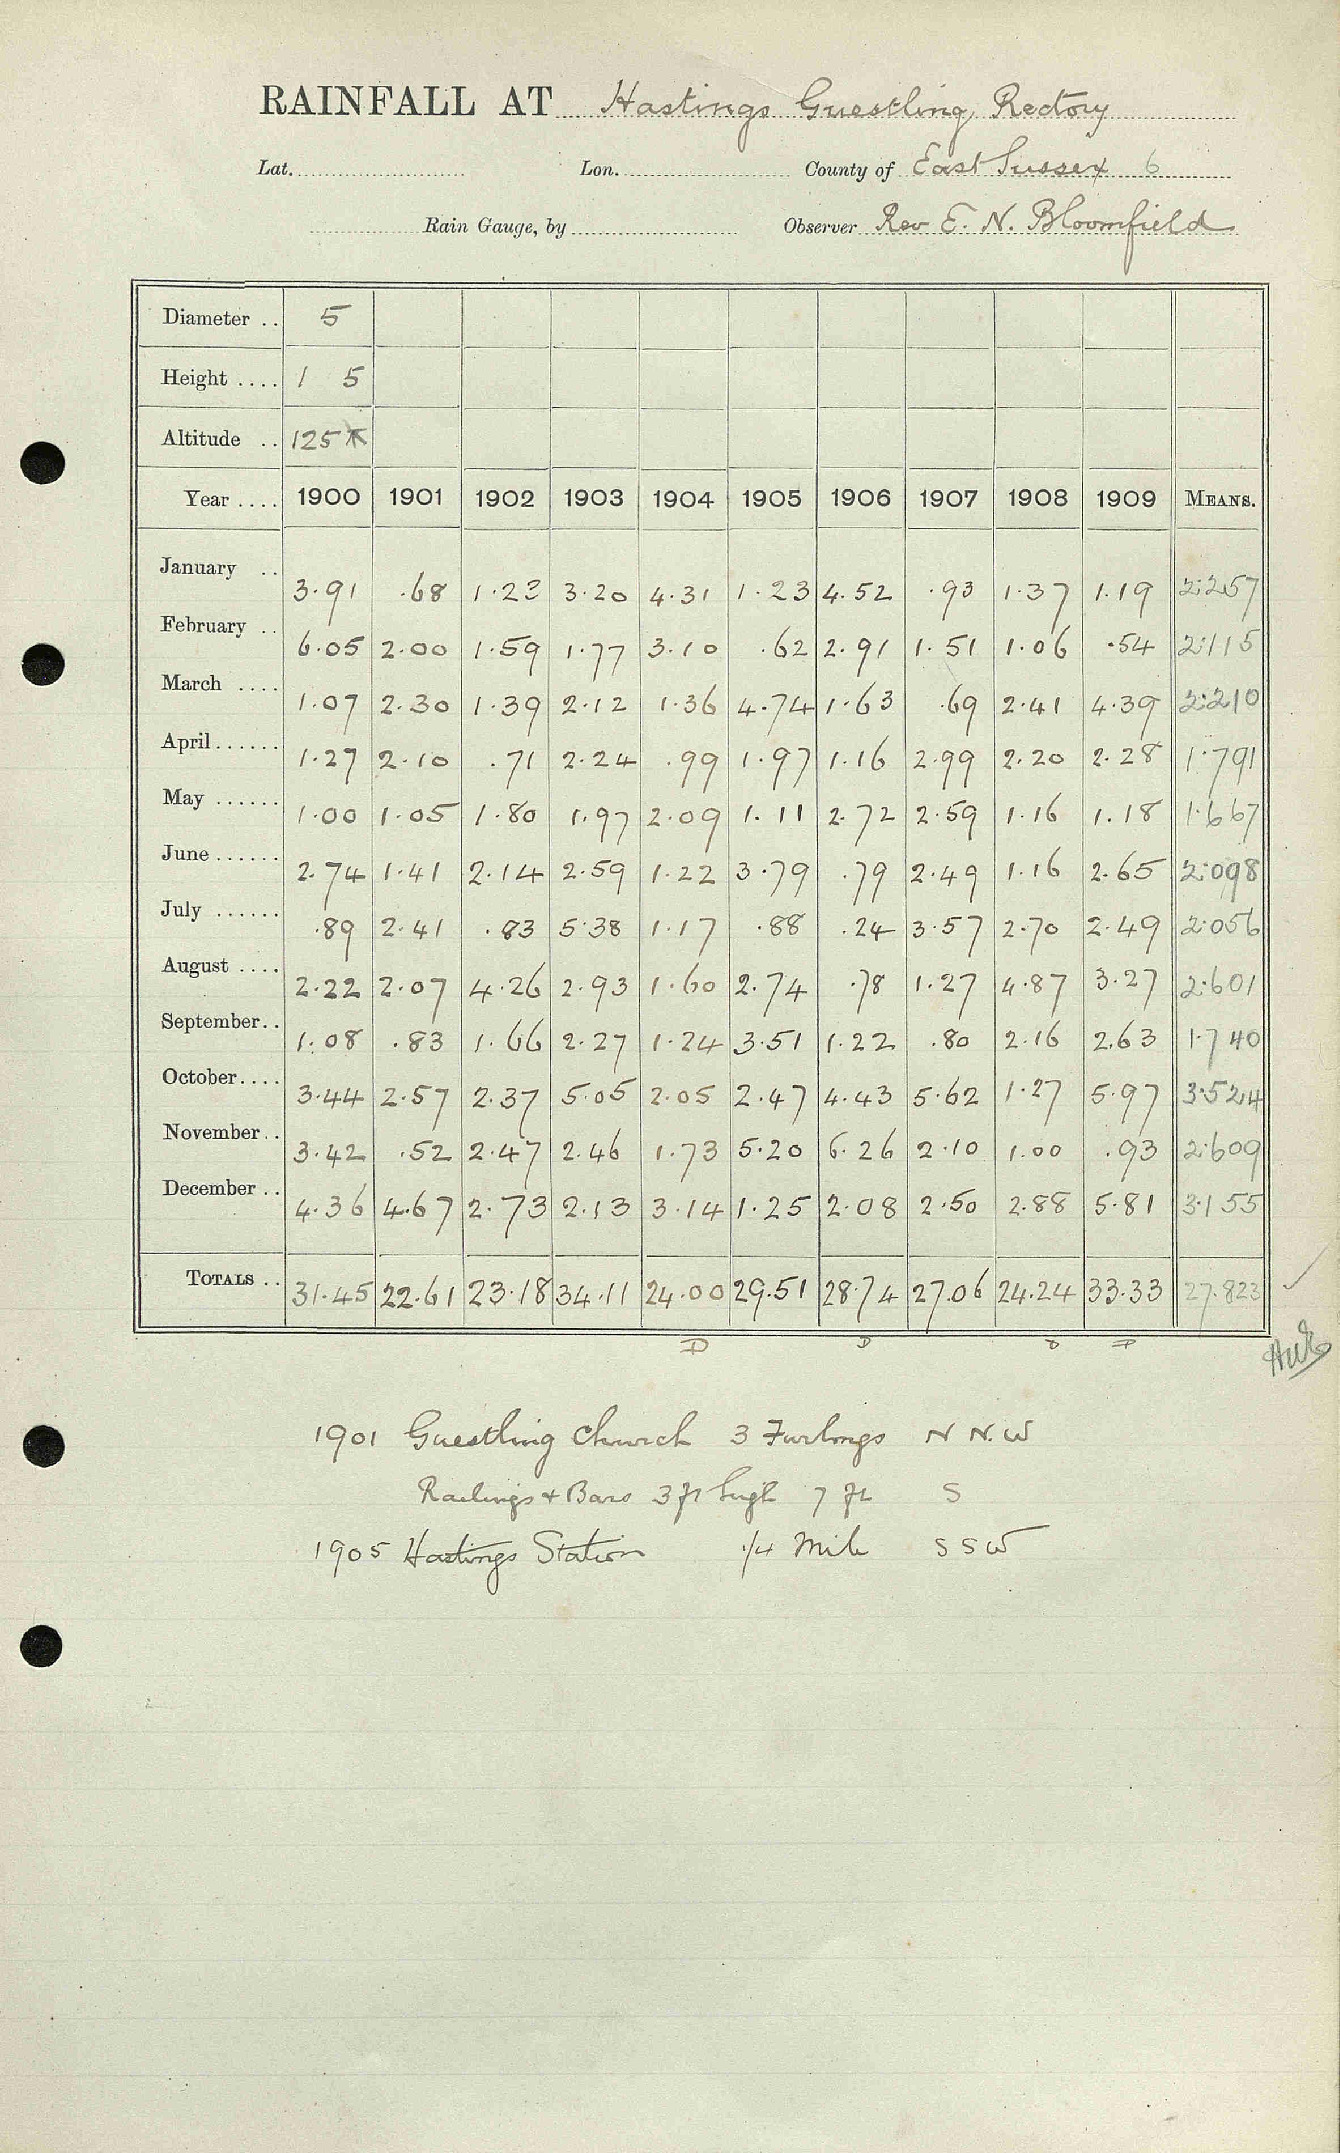 RAINFALL AT Hastings Guestling Rectory
Lat. Lon. County of East Sussex 6
Rain Gauge, by Observer Rev E. N. Bloomfield
Diameter .. 5
Height .... 1 5
Altitude .. 125
Year .... 1900 1901 1902 1903 1904 1905 1906 1907 1908 1909 MEANS.
January .. 3.91 .68 1.23 3.20 4.31 1.23 4.52 .93 1.37 1.19 2.257
February .. 6.05 2.00 1.59 1.77 3.10 .62 2.91 1.51 1.06 .54 2.115
March .... 1.07 2.30 1.39 2.12 1.36 4.74 1.63 .69 2.41 4.39 2.210
April...... 1.27 2.10 .71 2.24 .99 1.97 1.16 2.99 2.20 2.28 1.791
May ...... 1.00 1.05 1.80 1.97 2.09 1.11 2.72 2.59 1.16 1.18 1.667
June...... 2.74 1.41 2.14 2.59 1.22 3.79 .79 2.49 1.16 2.65 2.098
July ...... .89 2.41 .83 5.38 1.17 .88 .24 3.57 2.70 2.49 2.056
August .... 2.22 2.07 4.26 2.93 1.60 2.74 .78 1.27 4.87 3.27 2.601
September.. 1.08 .83 1.66 2.27 1.24 3.51 1.22 .80 2.16 2.63 1.740
October.... 3.44 2.57 2.37 5.05 2.05 2.47 4.43 5.62 1.27 5.97 3.524
November.. 3.42 .52 2.47 2.46 1.73 5.20 6.26 2.10 1.00 .93 2.609
December .. 4.36 4.67 2.73 2.13 3.14 1.25 2.08 2.50 2.88 5.81 3.155
TOTALS .. 31.45 22.61 23.18 34.11 24.00 29.51 28.74 27.06 24.24 33.33 27.823
D D D D
1901 Guestling Church 3 Furlongs N N.W
Railings + Bars 3 ft high 7 ft S
1905 Hastings Station 1/4 Mile S S W